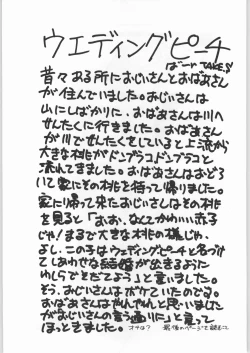 ウエディングピーチ
ばーい TAKES
昔々ある所におじいさんとおばあさん
が住んでいました。おじいさんは
山にしばかりに、おばあさんは川へ
せんたくに行きました。おばあさん
が川でせんたくをしていると上流から
大きな桃がドンブラコドンブラコと
流れてきました。おばあさんはおどろ
いて家にその桃を持って帰りました。
家に帰って来たおじいさんはその桃
を見ると「おお、なんてかわいい赤子
じゃ!まるで大きな桃の様じゃ。
よし、この子はウェディングピーチと名づけ
てしあわせな結婚が出きるように
わしらでそだてよう」と言いました。
そう、おじいさんはボケていたのです。
おばあさんはやれやれと思いました
がおじいさんの言う通りに」と言って
ほっときました。 オチは? 最後のページで読むこと